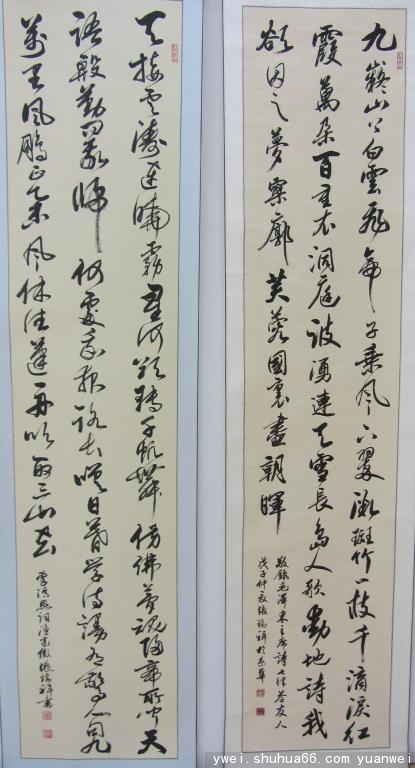 九嶷山上白雲飛帝子乘風下翠微斑竹一枝千滴淚紅
霞萬朵百重衣洞庭波湧連天雪長島人歌動地詩我
欲因之夢寥廓芙蓉國裏盡朝暉
敬錄毛澤東主席詩七律答友人
戊子仲夏張瑞祥於京華
天接雲濤連曉霧星河欲轉千帆舞仿佛夢魂歸帝所聞天
語殷勤問我歸何處我報路長嗟日暮學詩謾有驚人句九
萬里風鵬正舉風休住蓬舟吹取三山去
李清照詞漁家傲張瑞祥書
ywei.shuhua66.com/yuanwei